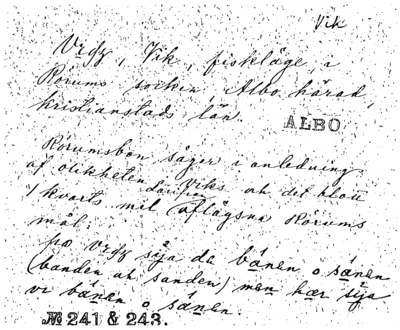 Vik
Vrdz, Vik, fiskläge, i
Rörums socken, Albo härad,
Kristianstads län.
ALBO
Rörumsbon säger i anledning
af olikheten Viks ock det blott
1/ kvarts mil aflägsna Rörums
mål:
po vrdz sija da bänen o sänen
(banden ock sanden) men hær sija
vi bänen o sänen.
№ 241 & 243.